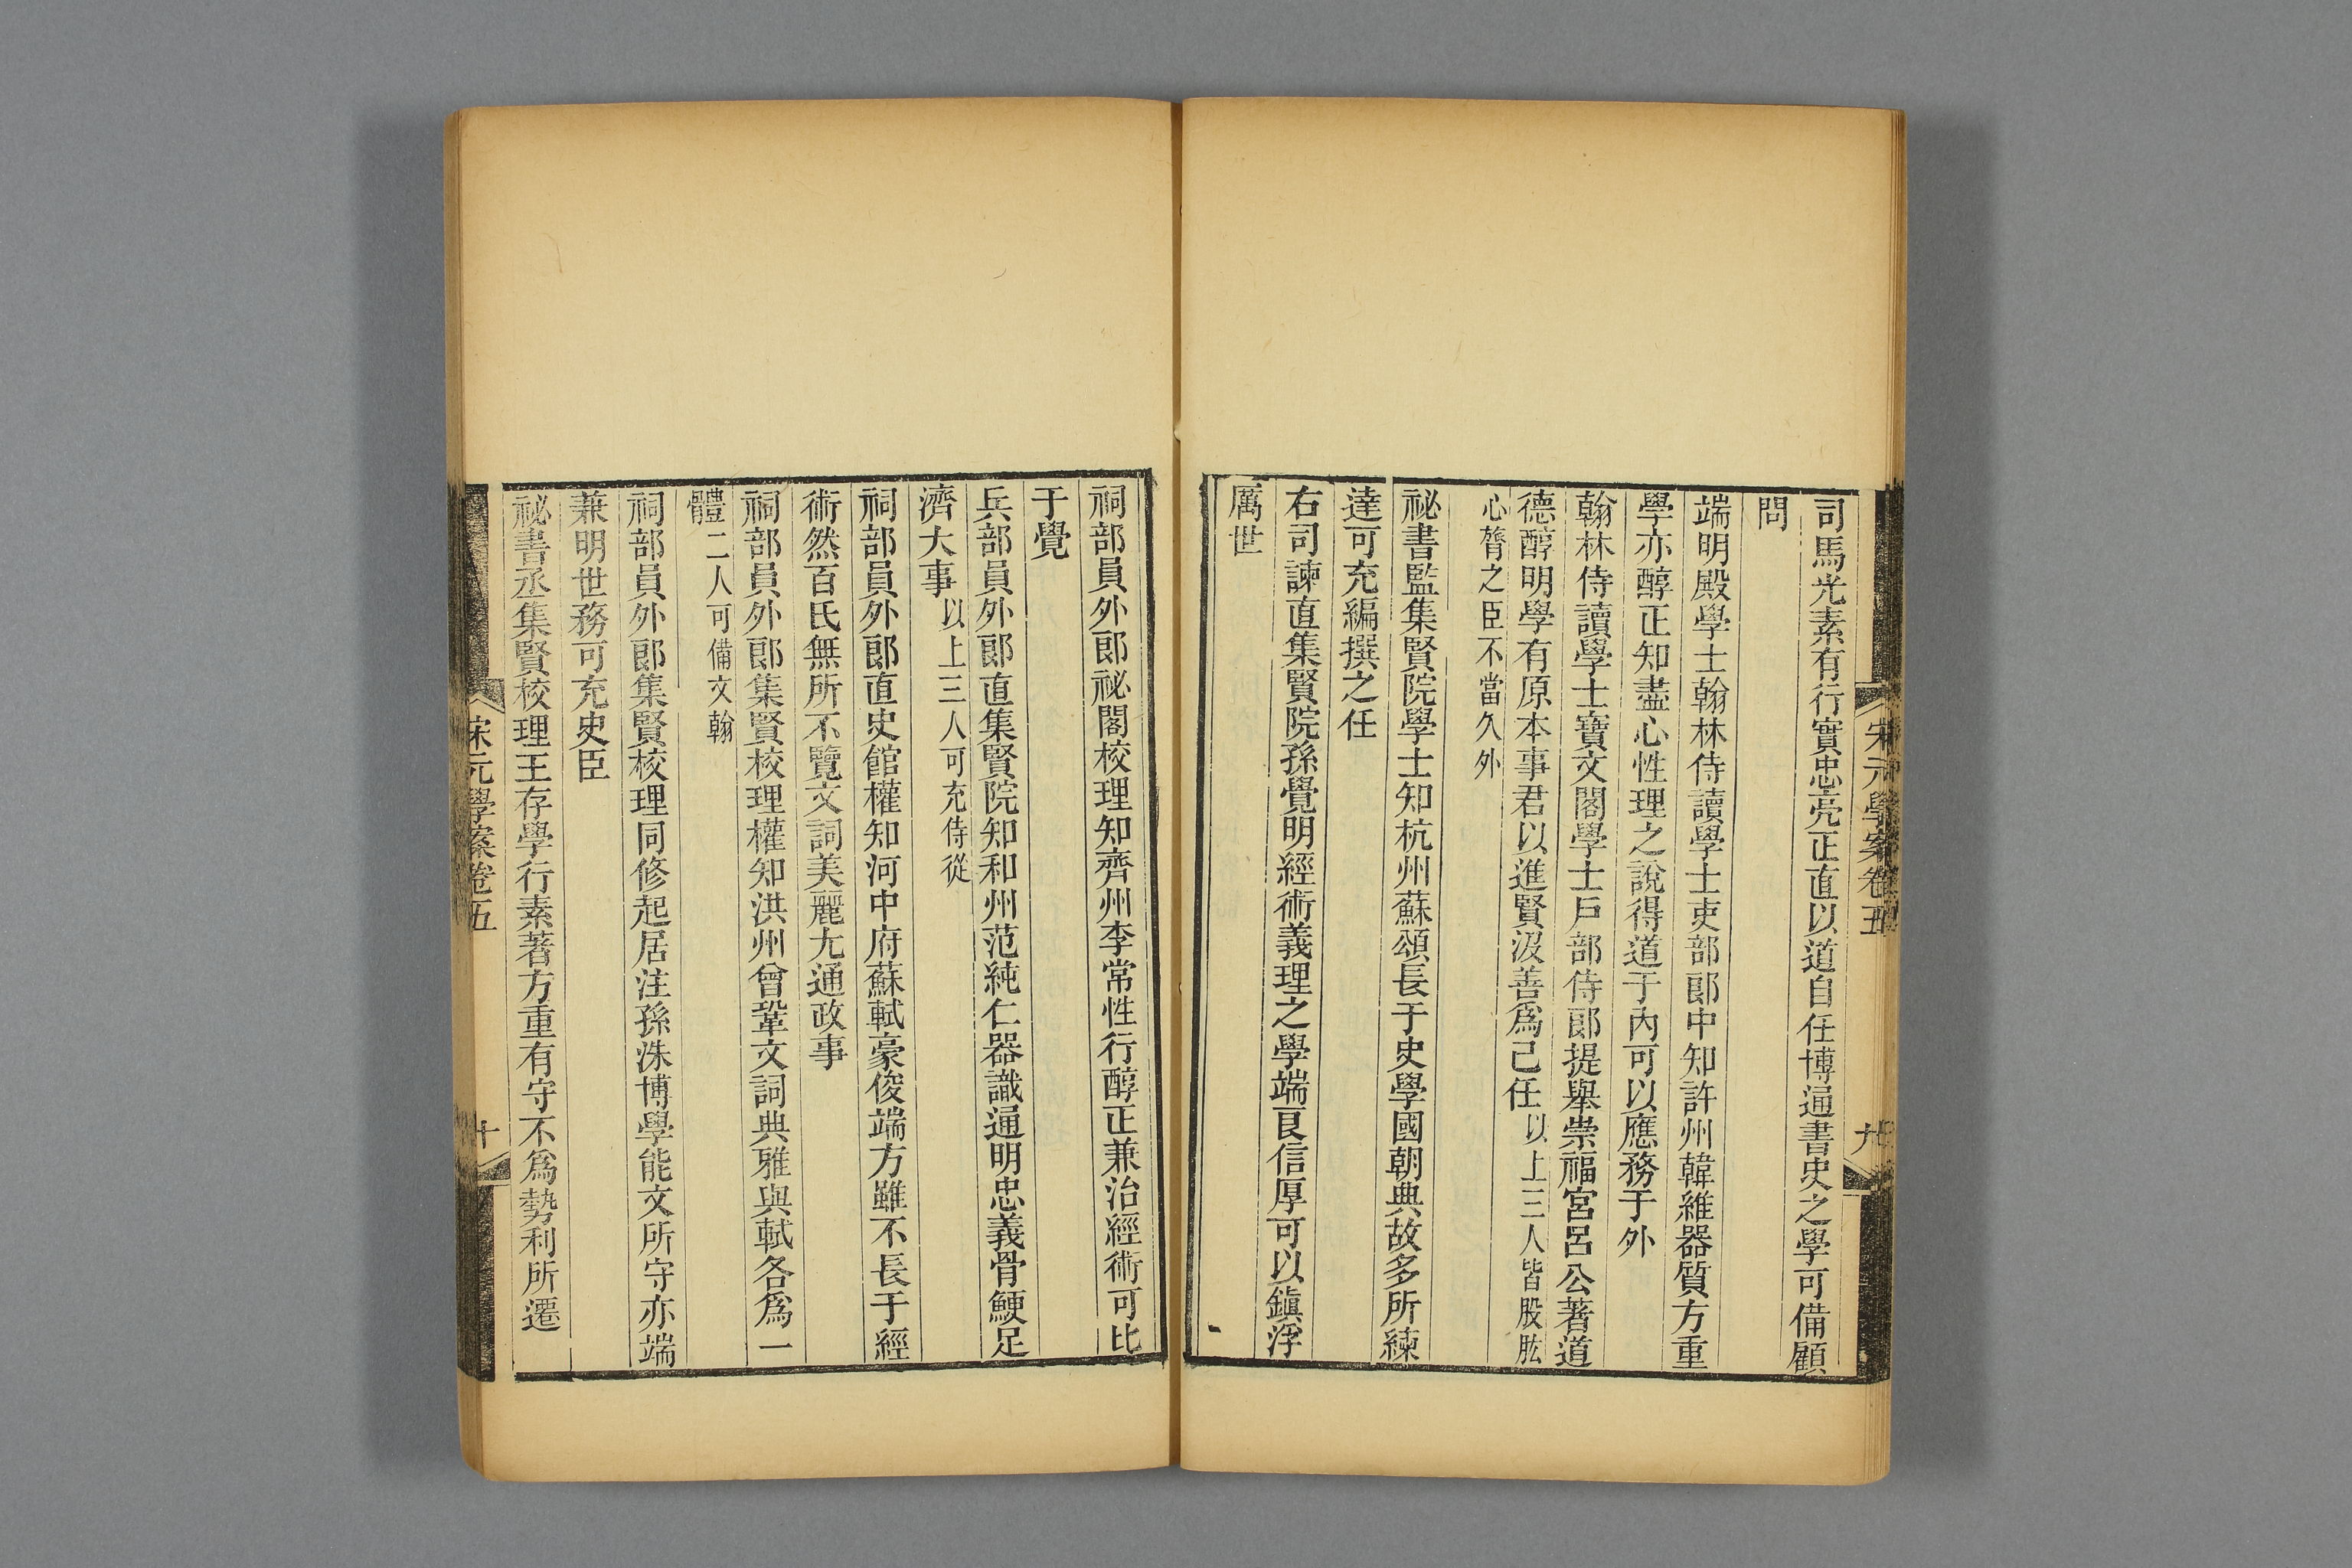 宋元學案卷五
九
司馬光素有行實忠亮正直以道自任博通書史之學可備顧
問
端明殿學士翰林侍讀學士吏部郎中知許州韓維器質方重
學亦醇正知盡心性理之說得道于內可以應務于外
翰林侍讀學士寶文閣學士戶部侍郎提舉崇福宮呂公著道
德醇明學有原本事君以進賢汲善爲己任以上三人皆股肱
心膂之臣不當久外
祕書監集賢院學士知杭州蘇頌長于史學國朝典故多所練
達可充編撰之任
右司諫直集賢院孫覺明經術義理之學端良信厚可以鎭浮
厲世
祠部員外郎祕閣校理知齊州李常性行醇正兼治經術可比
于覺
兵部員外郎直集賢院知和州范純仁器識通明忠義骨鯁足
濟大事以上三人可充侍從
祠部員外郎直史館權知河中府蘇軾豪俊端方雖不長于經
術然百氏無所不覽文詞美麗尢通政事
祠部員外郎集賢校理權知洪州曾鞏文詞典雅與軾各爲一
體二人可備文翰
祠部員外郎集賢校理同修起居注孫洙博學能文所守亦端
兼明世務可充史臣
祕書丞集賢校理王存學行素著方重有守不爲勢利所遷
宋元學案卷五
十